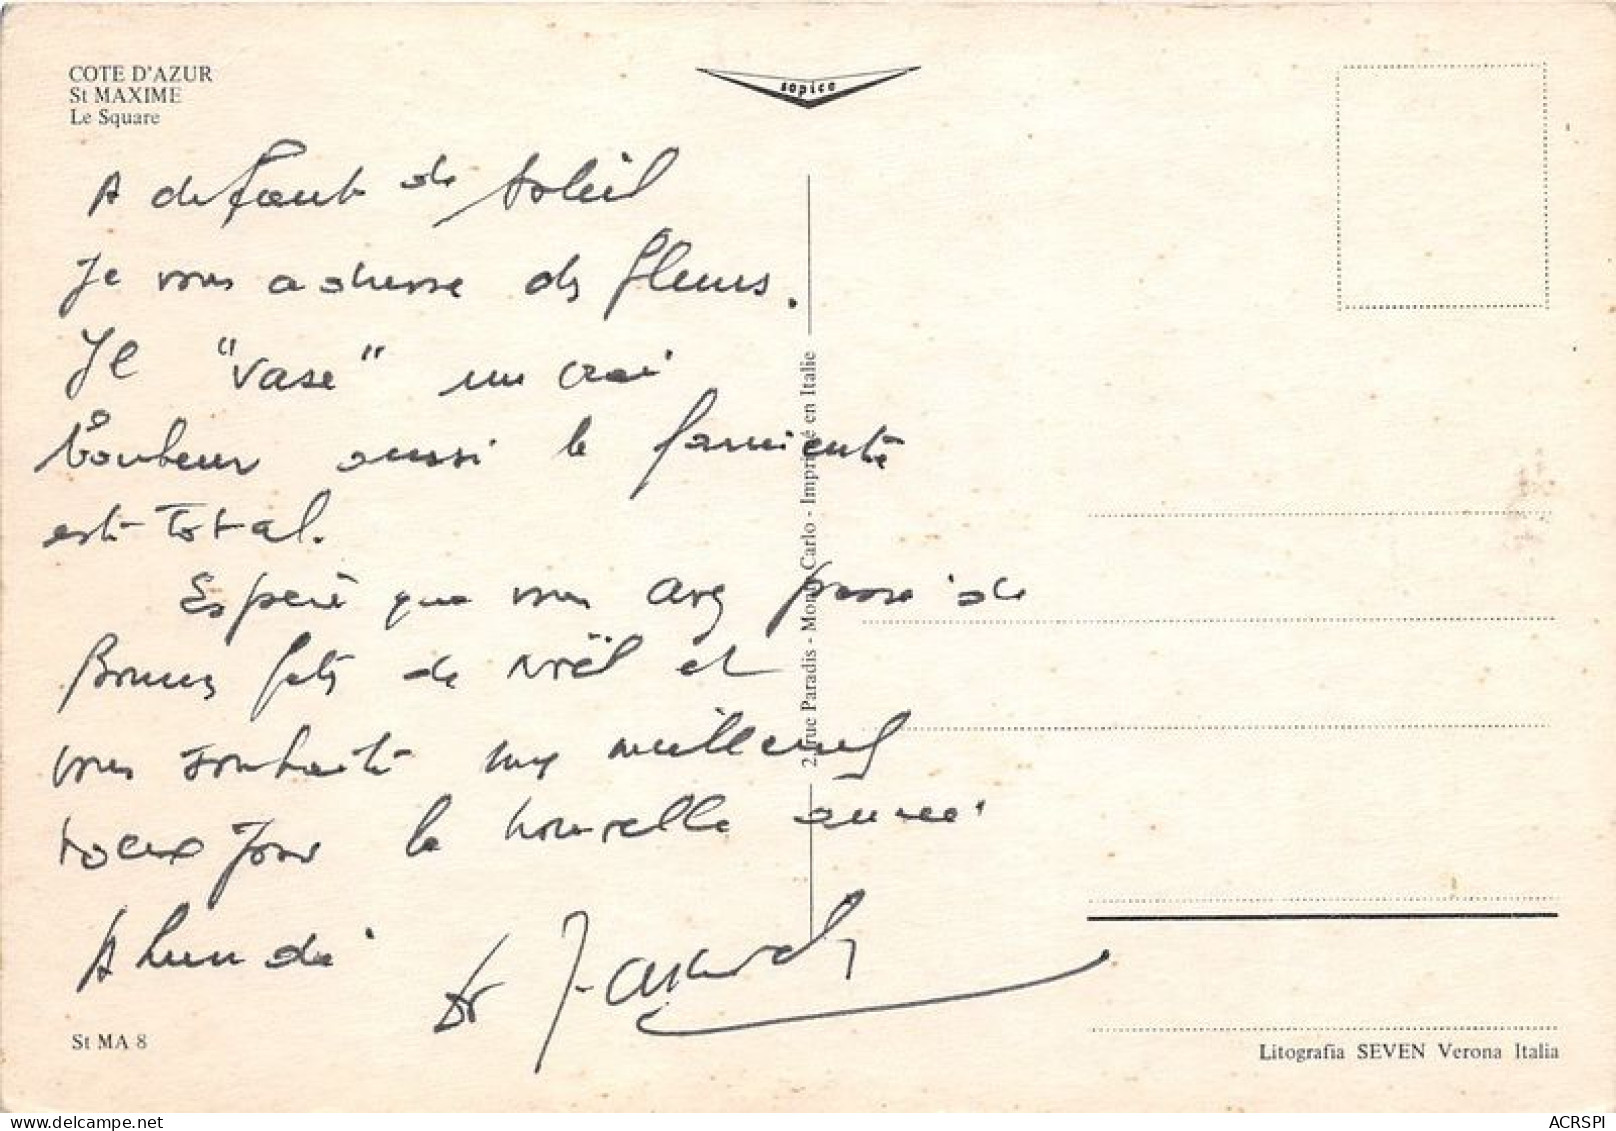 COTE D'AZUR
St MAXIME
Le Square
sopico
A defaut de soleil
Je vous adresse des fleurs.
Il "vase" un
bonheur aussi le farniente
est total.
Espère que vous avez passé de
Bonnes fêtes de Noël et
vous souhaite mes meilleurs
voeux pour la nouvelle année
A lundi
Dr J.
2, rue Paradis - Monte Carlo - Imprimé en Italie
St MA 8
Litografia SEVEN Verona Italia
ACRSPI